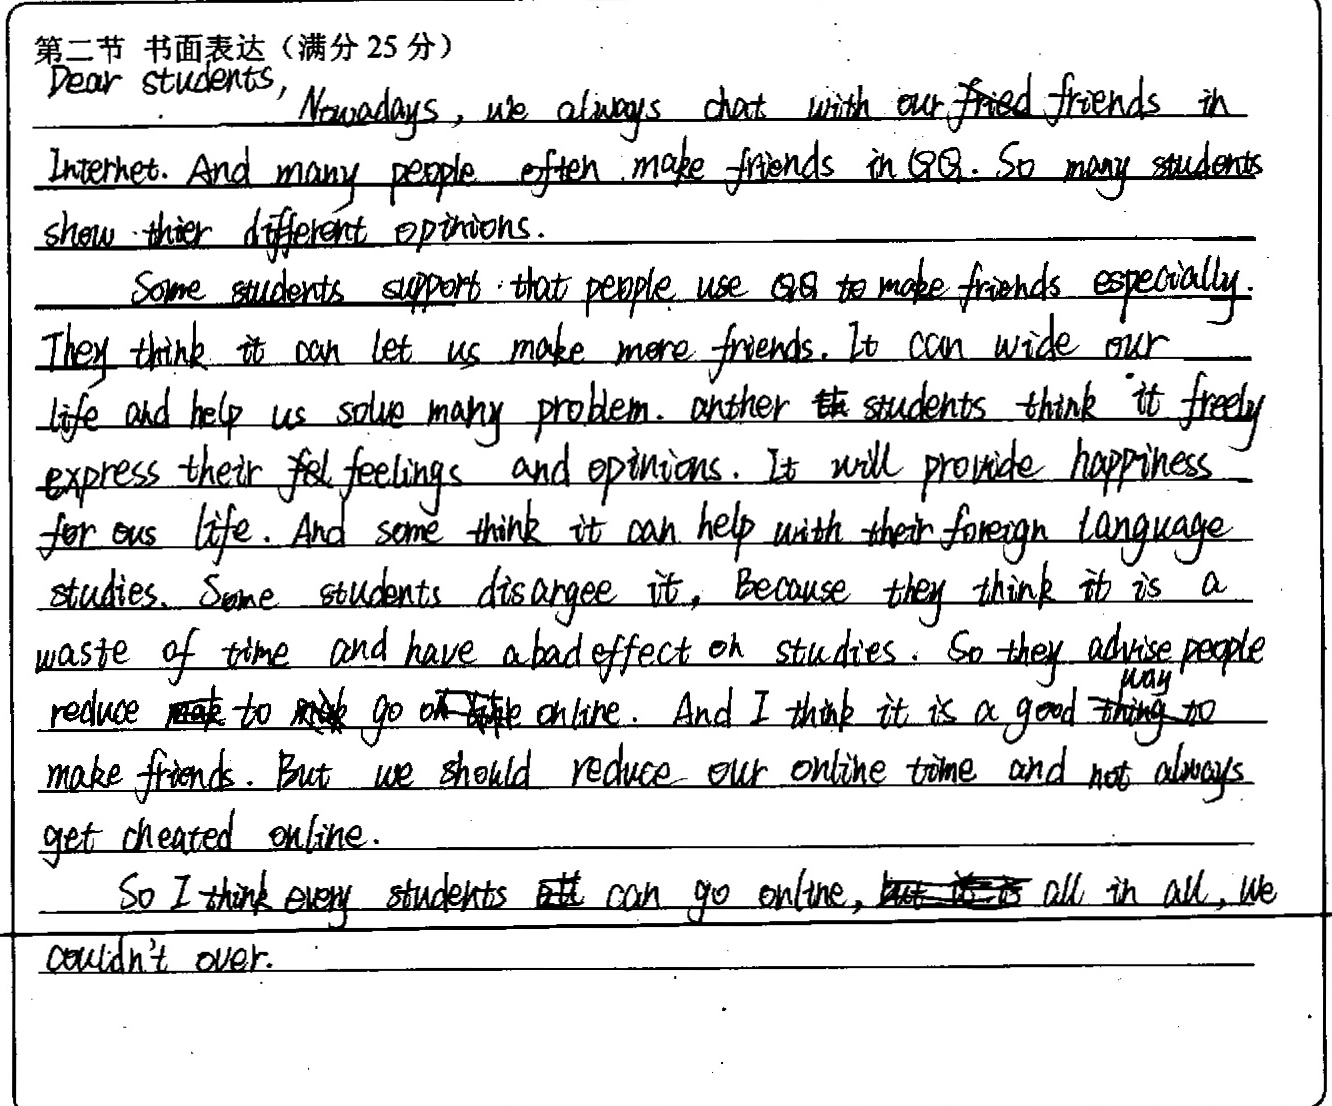 第二节 书面表达（满分 25 分）
Dear students,
Nowadays, we always chat with our fried friends in
Internet. And many people often make friends in QQ. So many students
show thier different opinions.
Some students support that people use QQ to make friends especially.
They think it can let us make more friends. It can wide our
life and help us solve many problem. anther students think it freely
express their fel feelings and opinions. It will provide happiness
for ous life. And some think it can help with their foreign language
studies. Some students disargee it, Because they think it is a
waste of time and have a bad effect on studies. So they advise people
way
reduce to go online. And I think it is a good thing to
make friends. But we should reduce our online time and not always
get cheated online.
So I think every students can go online, but it is all in all, we
couldn't over.